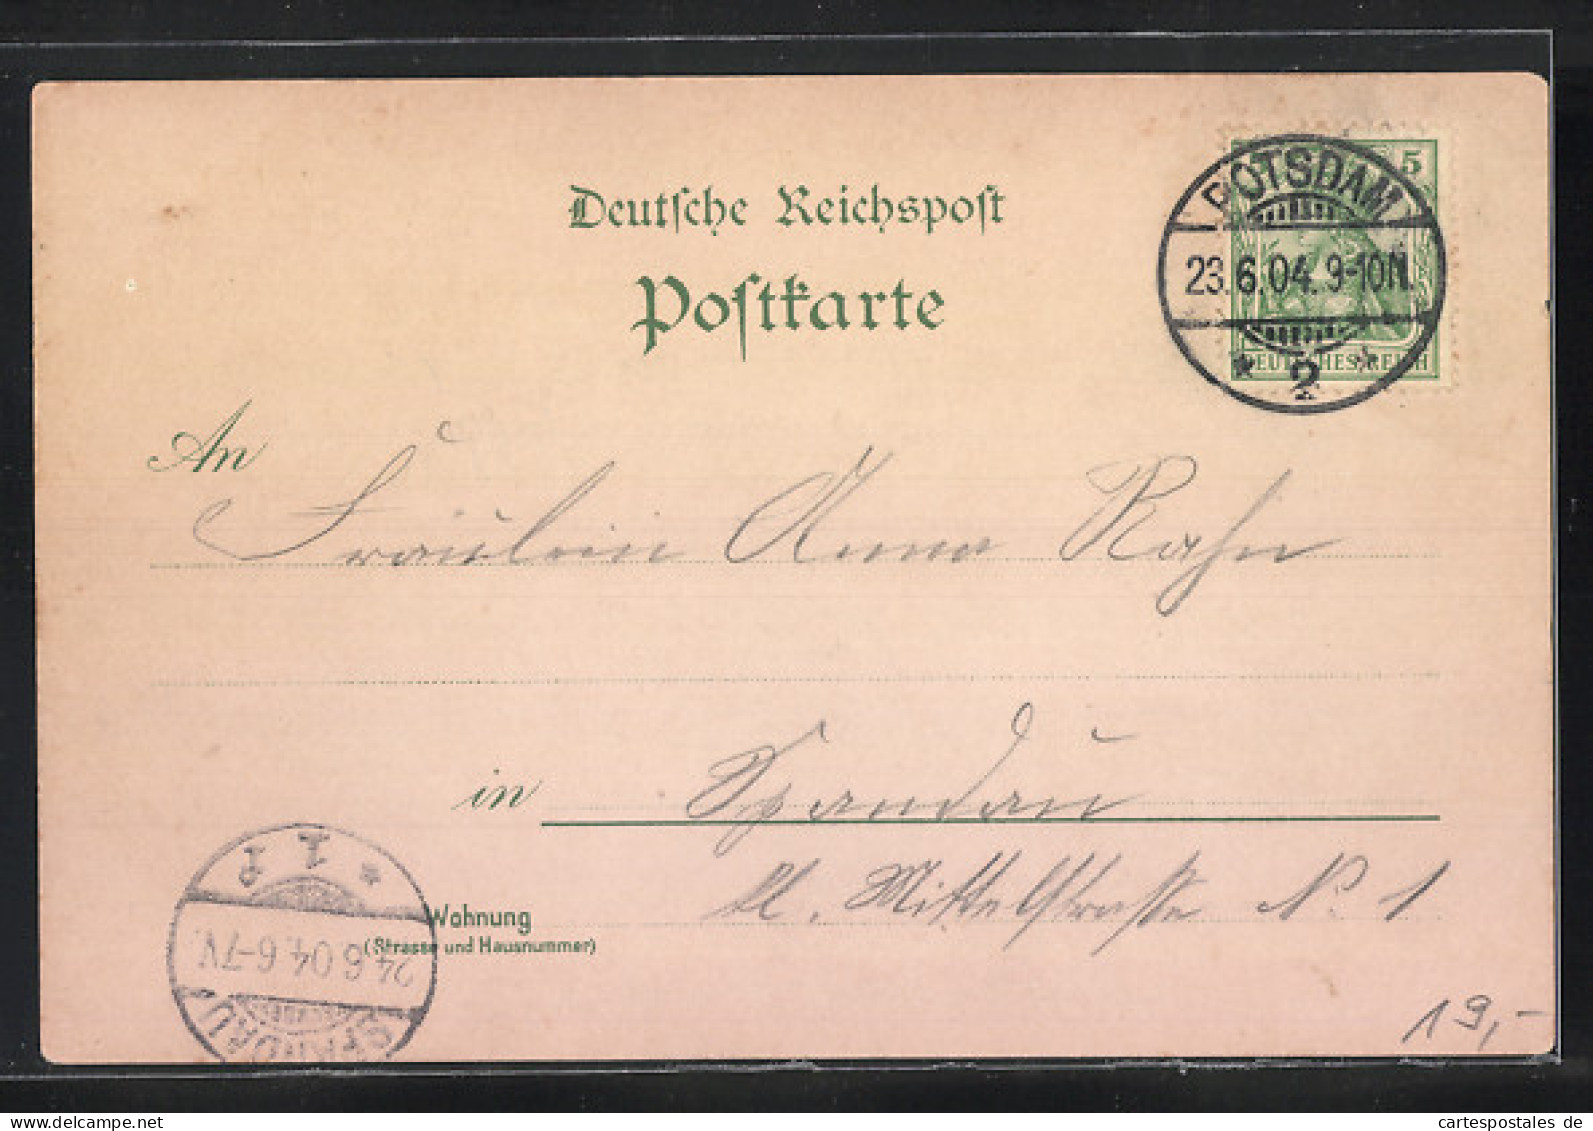 Deutsche Reichspost
Postkarte
5
POTSDAM
23.6.04.9-10N.
* 2 *
DEUTSCHES REICH
An Fräulein Anna Rahn
in Spandau
Wohnung
(Strasse und Hausnummer)
kl. Mittelstraße No. 1
* 1
24.6.04.6-7V.
SPANDAU
19,-
cartespostales de